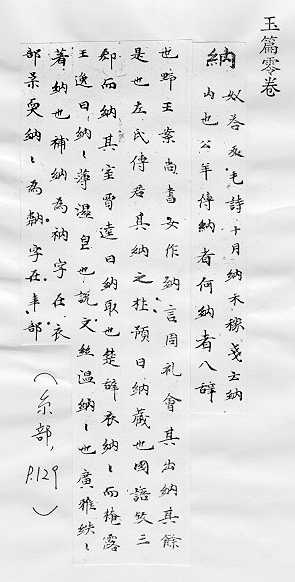 玉篇零卷
納 奴荅反毛詩十月納禾稼戔云納
内也公羊傳納者何納者入辞
也野王案尚書女作納言周礼會其出納其餘
是也左氏傳君其納之杜預曰納蔵也國語殺三
郤而納其室賈逵曰納取也楚辞衣納〻而掩露
王逸曰納〻濡湿皃也說文絲温納〻也廣雅紩〻
著納也補納為衲字在衣
部柔耎納〻為䪏字在韋部
(糸部, P.129)